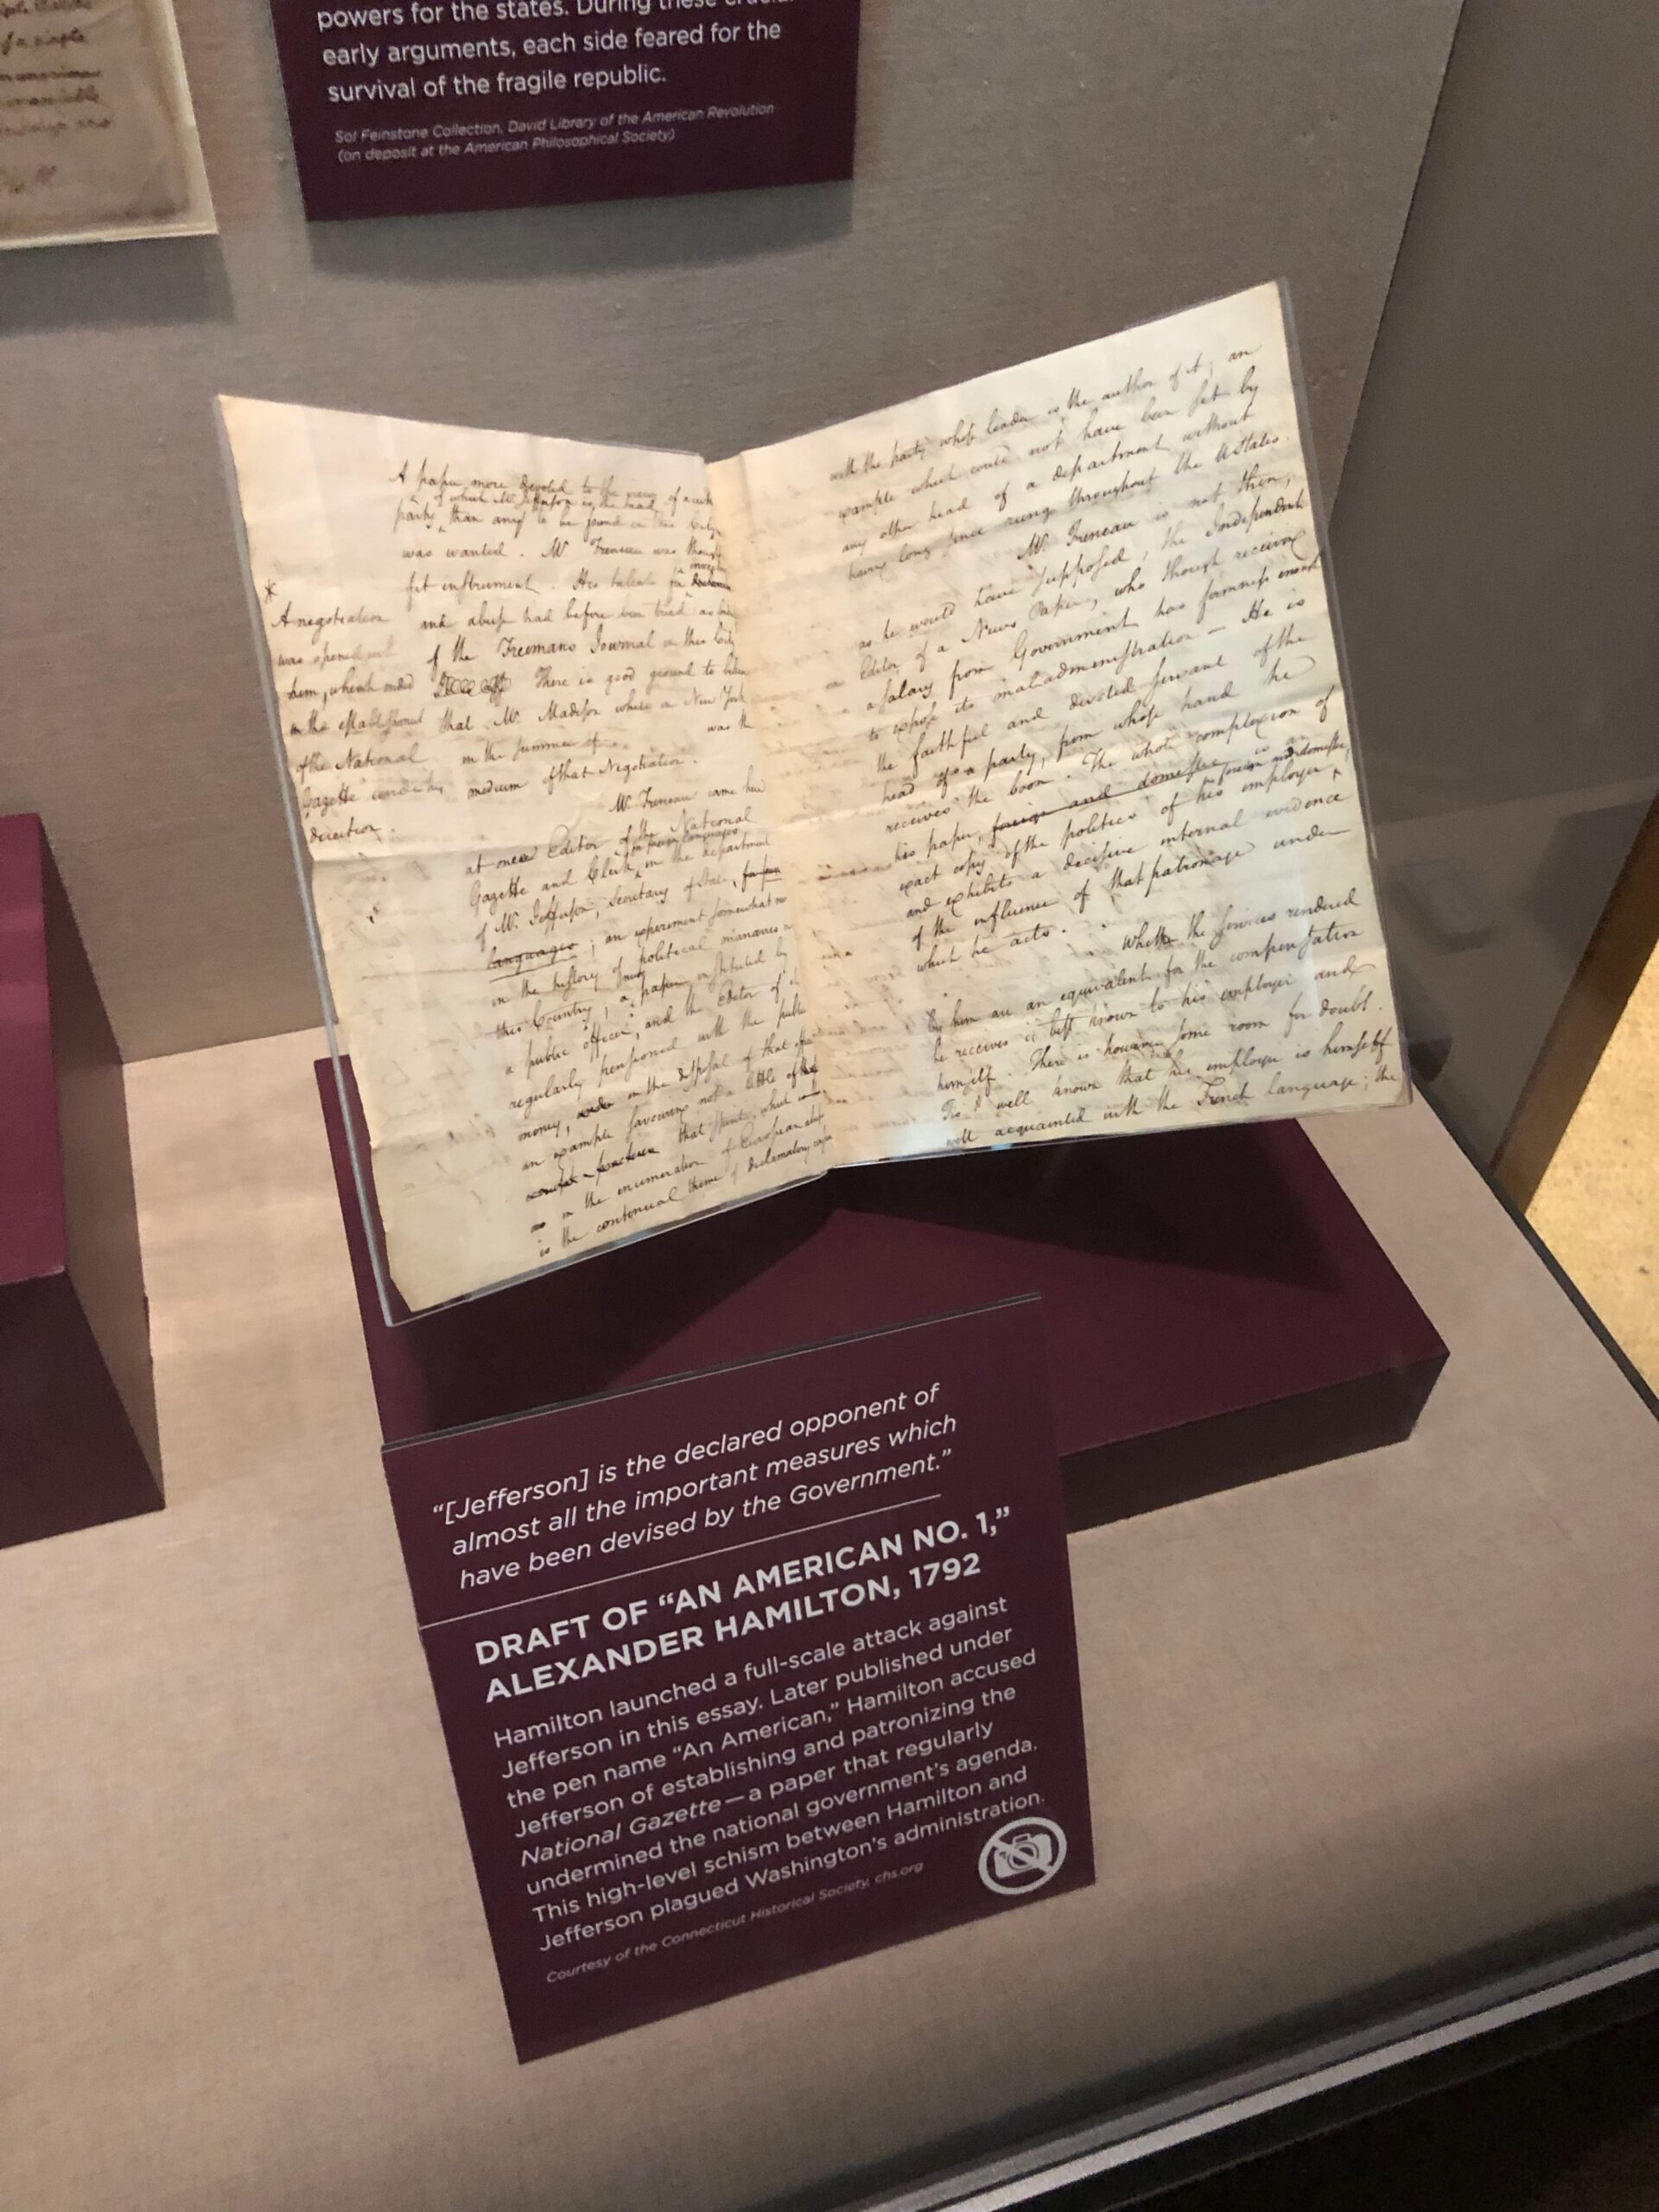 powers for the states. During these
early arguments, each side feared for the
survival of the fragile republic.
Sol Feinstone Collection, David Library of the American Revolution
(on deposit at the American Philosophical Society)
A paper more devoted to the views of a certain
of which Mr. Jefferson is the head,
party than any to be found in this City
was wanted. Mr Freneau was thought
fit instrument. His talents for
and abuse had before been tried as
of the Freemans Journal in this City
There is good ground to
that Mr. Madison while in New York
in the summer of was th
medium of that Negotiation.
*
A negotiation
was opened with
him, which ended
in the establishment
of the National
Gazette under his
direction.
Mr Freneau came here
at once Editor of the National
Gazette and Clerk in the department
of Mr. Jefferson, Secretary of State,
languages; an experiment somewhat
in the history of political manœuvres
this Country; a paper instituted by
a public officer, and the Editor of it
regularly pensioned with the public
money, in the disposal of that
an example favouring not a little of
that spirit, which
as in the enumeration of European
is the continual theme of declamatory
with the party whose leader is the author of it; an
example which could not have been set by
any other head of a department without
having long since rung throughout the UStates.
Mr. Freneau is not then,
as he would have supposed, the Independent
Editor of a News Paper, who though receiving
a salary from Government has firmness enough
to expose its maladministration — He is
the faithful and devoted servant of the
head of a party, from whose hand he
receives the boon. The whole complexion of
his paper, foreign and domestic is an
exact copy of the politics of his employer foreign and domestic,
and exhibits a decisive internal evidence
of the influence of that patronage under
which he acts.
Whether the services rendered
by him are an equivalent for the compensation
he receives is best known to his employer and
himself. There is however some room for doubt.
Tis well known that his employer is himself
well acquainted with the French language; the
“[Jefferson] is the declared opponent of
almost all the important measures which
have been devised by the Government.”
DRAFT OF “AN AMERICAN NO. 1,”
ALEXANDER HAMILTON, 1792
Hamilton launched a full-scale attack against
Jefferson in this essay. Later published under
the pen name “An American,” Hamilton accused
Jefferson of establishing and patronizing the
National Gazette—a paper that regularly
undermined the national government’s agenda.
This high-level schism between Hamilton and
Jefferson plagued Washington’s administration.
Courtesy of the Connecticut Historical Society, chs.org